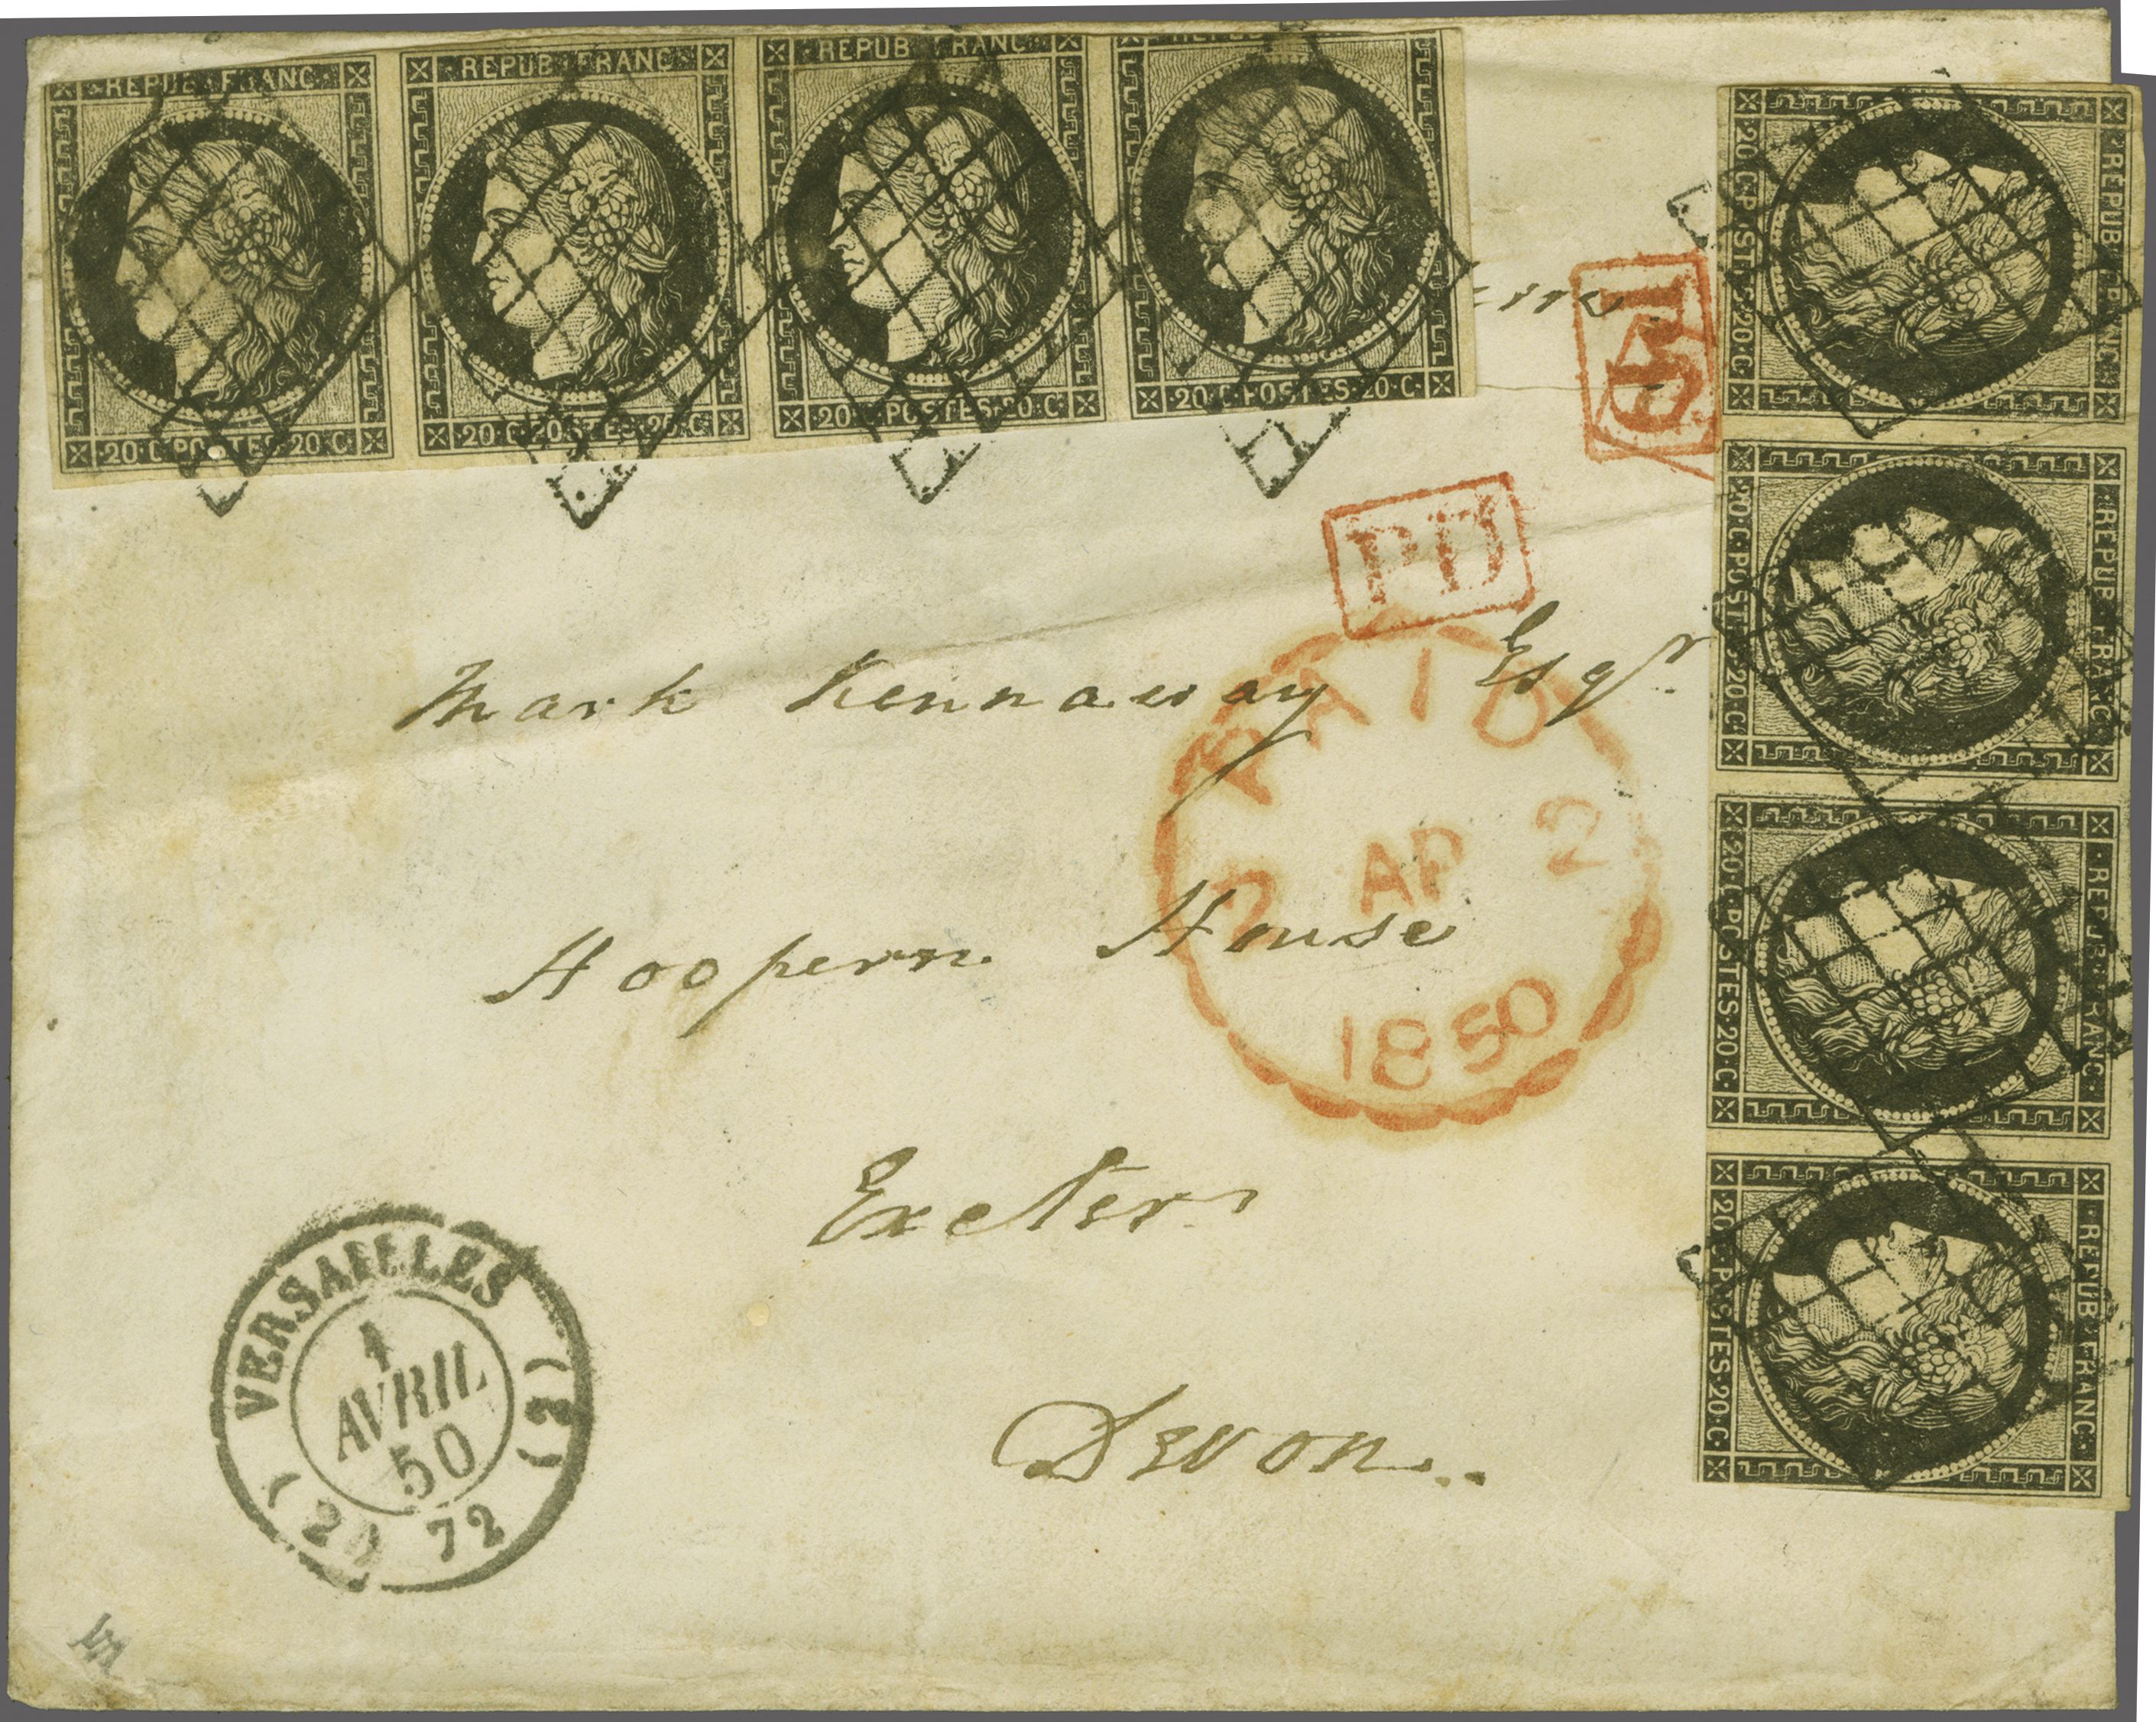 REPUB FRANC
REPUB FRANC
REPUB FRANC
20·C·POSTES·20·C·
20·C·POSTES·20·C·
20·C·POSTES·20·C·
20·C·POSTES·20·C·
REPUB·FRANC·
20·C·POSTES·20·C·
REPUB·FRANC·
20·C·POSTES·20·C·
REPUB·FRANC·
20·C·POSTES·20·C·
REPUB·FRANC·
20·C·POSTES·20·C·
PD
PD
Mark Kennaway Esqr.
PAID
2 AP 2
1850
Hoopern House
Exeter
Devon..
VERSAILLES (2)
1
AVRIL
50
72